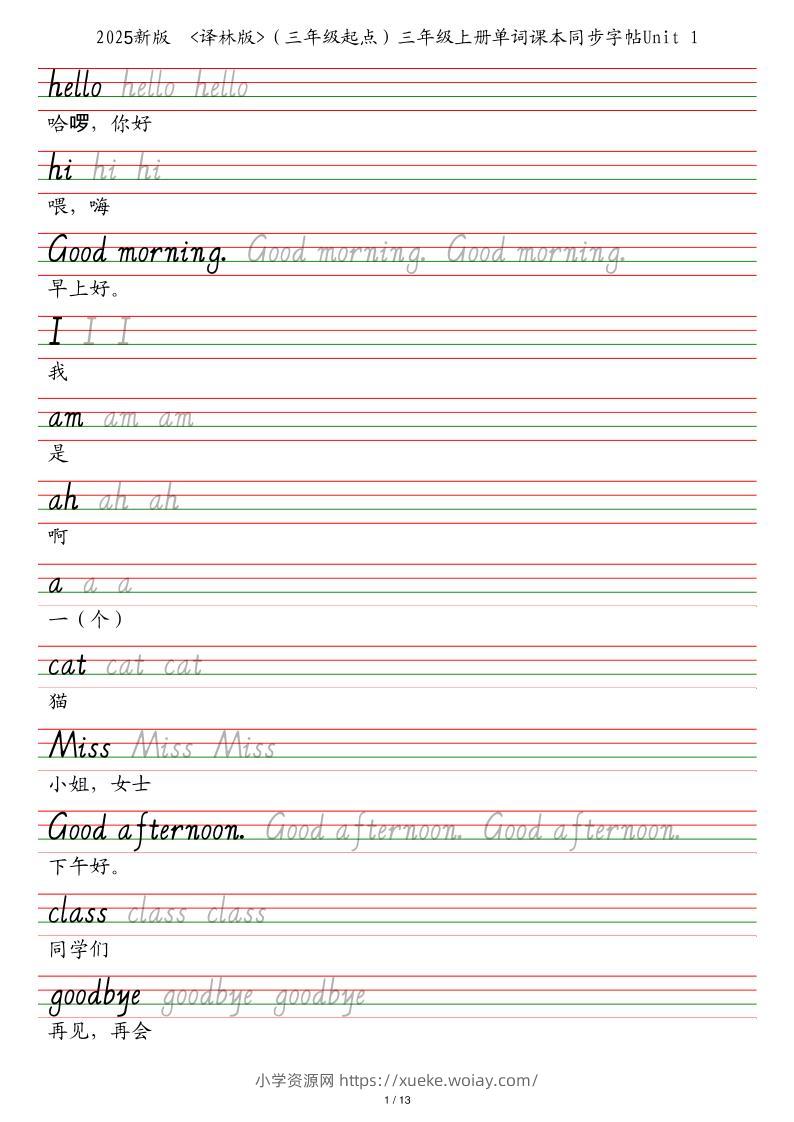 2025新版 <译林版>（三年级起点）三年级上册单词课本同步字帖Unit 1
hello hello hello
哈啰，你好
hi hi hi
喂，嗨
Good morning. Good morning. Good morning.
早上好。
I I I
我
am am am
是
ah ah ah
啊
a a a
一（个）
cat cat cat
猫
Miss Miss Miss
小姐，女士
Good afternoon. Good afternoon. Good afternoon.
下午好。
class class class
同学们
goodbye goodbye goodbye
再见，再会
小学资源网 https://xueke.woiay.com/
1 / 13